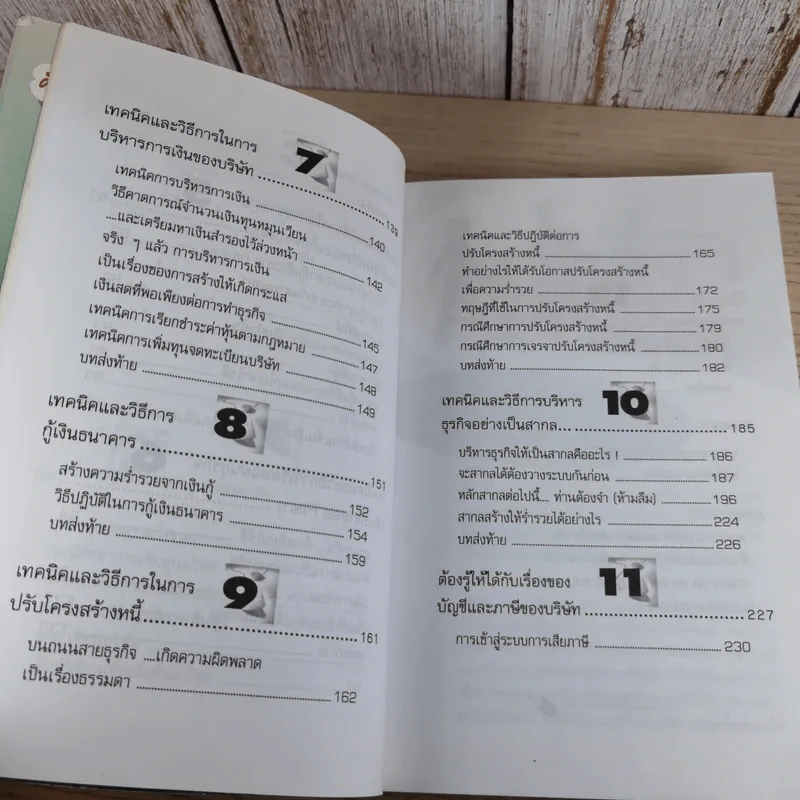 เทคนิคและวิธีการในการ
บริหารการเงินของบริษัท 7 139
เทคนิคการบริหารการเงิน 140
วิธีคาดการณ์จำนวนเงินทุนหมุนเวียน
....และเตรียมหาเงินสำรองไว้ล่วงหน้า 142
จริง ๆ แล้ว การบริหารการเงิน
เป็นเรื่องของการสร้างให้เกิดกระแส
เงินสดที่พอเพียงต่อการทำธุรกิจ 145
เทคนิคการเรียกชำระค่าหุ้นตามกฎหมาย 147
เทคนิคการเพิ่มทุนจดทะเบียนบริษัท 148
บทส่งท้าย 149
เทคนิคและวิธีการ 8
กู้เงินธนาคาร 151
สร้างความร่ำรวยจากเงินกู้ 152
วิธีปฏิบัติในการกู้เงินธนาคาร 154
บทส่งท้าย 159
เทคนิคและวิธีการในการ 9
ปรับโครงสร้างหนี้ 161
บนถนนสายธุรกิจ ....เกิดความผิดพลาด
เป็นเรื่องธรรมดา 162
เทคนิคและวิธีปฏิบัติต่อการ
ปรับโครงสร้างหนี้ 165
ทำอย่างไรให้ได้รับโอกาสปรับโครงสร้างหนี้
เพื่อความร่ำรวย 172
ทฤษฎีที่ใช้ในการปรับโครงสร้างหนี้ 175
กรณีศึกษาการปรับโครงสร้างหนี้ 179
กรณีศึกษาการเจรจาปรับโครงสร้างหนี้ 180
บทส่งท้าย 182
เทคนิคและวิธีการบริหาร 10
ธุรกิจอย่างเป็นสากล... 185
บริหารธุรกิจให้เป็นสากลคืออะไร ! 186
จะสากลได้ต้องวางระบบกันก่อน 187
หลักสากลต่อไปนี้... ท่านต้องจำ (ห้ามลืม) 196
สากลสร้างให้ร่ำรวยได้อย่างไร 224
บทส่งท้าย 226
ต้องรู้ให้ได้กับเรื่องของ 11
บัญชีและภาษีของบริษัท 227
การเข้าสู่ระบบการเสียภาษี 230